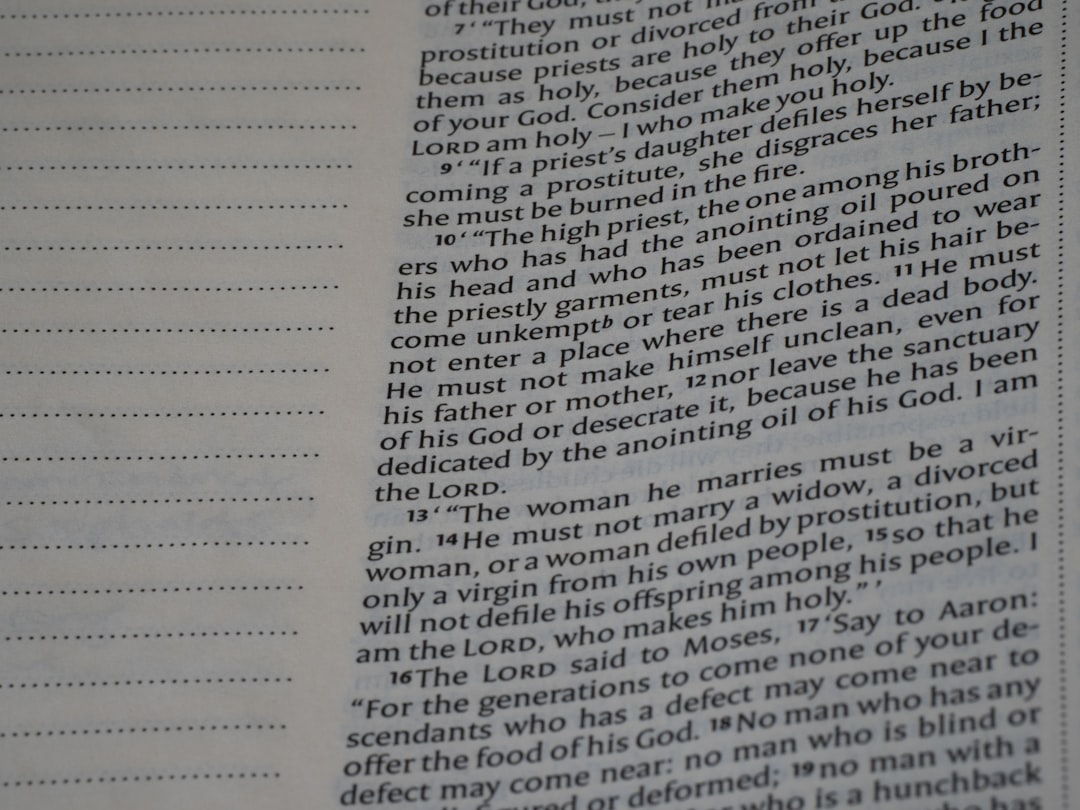 of their God,
7‘ “They must not
prostitution or divorced from
because priests are holy to their God.
them as holy, because they offer up the food
of your God. Consider them holy, because I the
LORD am holy – I who make you holy.
9‘ “If a priest’s daughter defiles herself by be-
coming a prostitute, she disgraces her father;
she must be burned in the fire.
10‘ “The high priest, the one among his broth-
ers who has had the anointing oil poured on
his head and who has been ordained to wear
the priestly garments, must not let his hair be-
come unkemptb or tear his clothes. 11 He must
not enter a place where there is a dead body.
He must not make himself unclean, even for
his father or mother, 12 nor leave the sanctuary
of his God or desecrate it, because he has been
dedicated by the anointing oil of his God. I am
the LORD.
13‘ “The woman he marries must be a vir-
gin. 14 He must not marry a widow, a divorced
woman, or a woman defiled by prostitution, but
only a virgin from his own people, 15 so that he
will not defile his offspring among his people. I
am the LORD, who makes him holy.” ’
16 The LORD said to Moses, 17 ‘Say to Aaron:
“For the generations to come none of your de-
scendants who has a defect may come near to
offer the food of his God. 18 No man who has any
defect may come near: no man who is blind or
or deformed; 19 no man with a
who is a hunchback